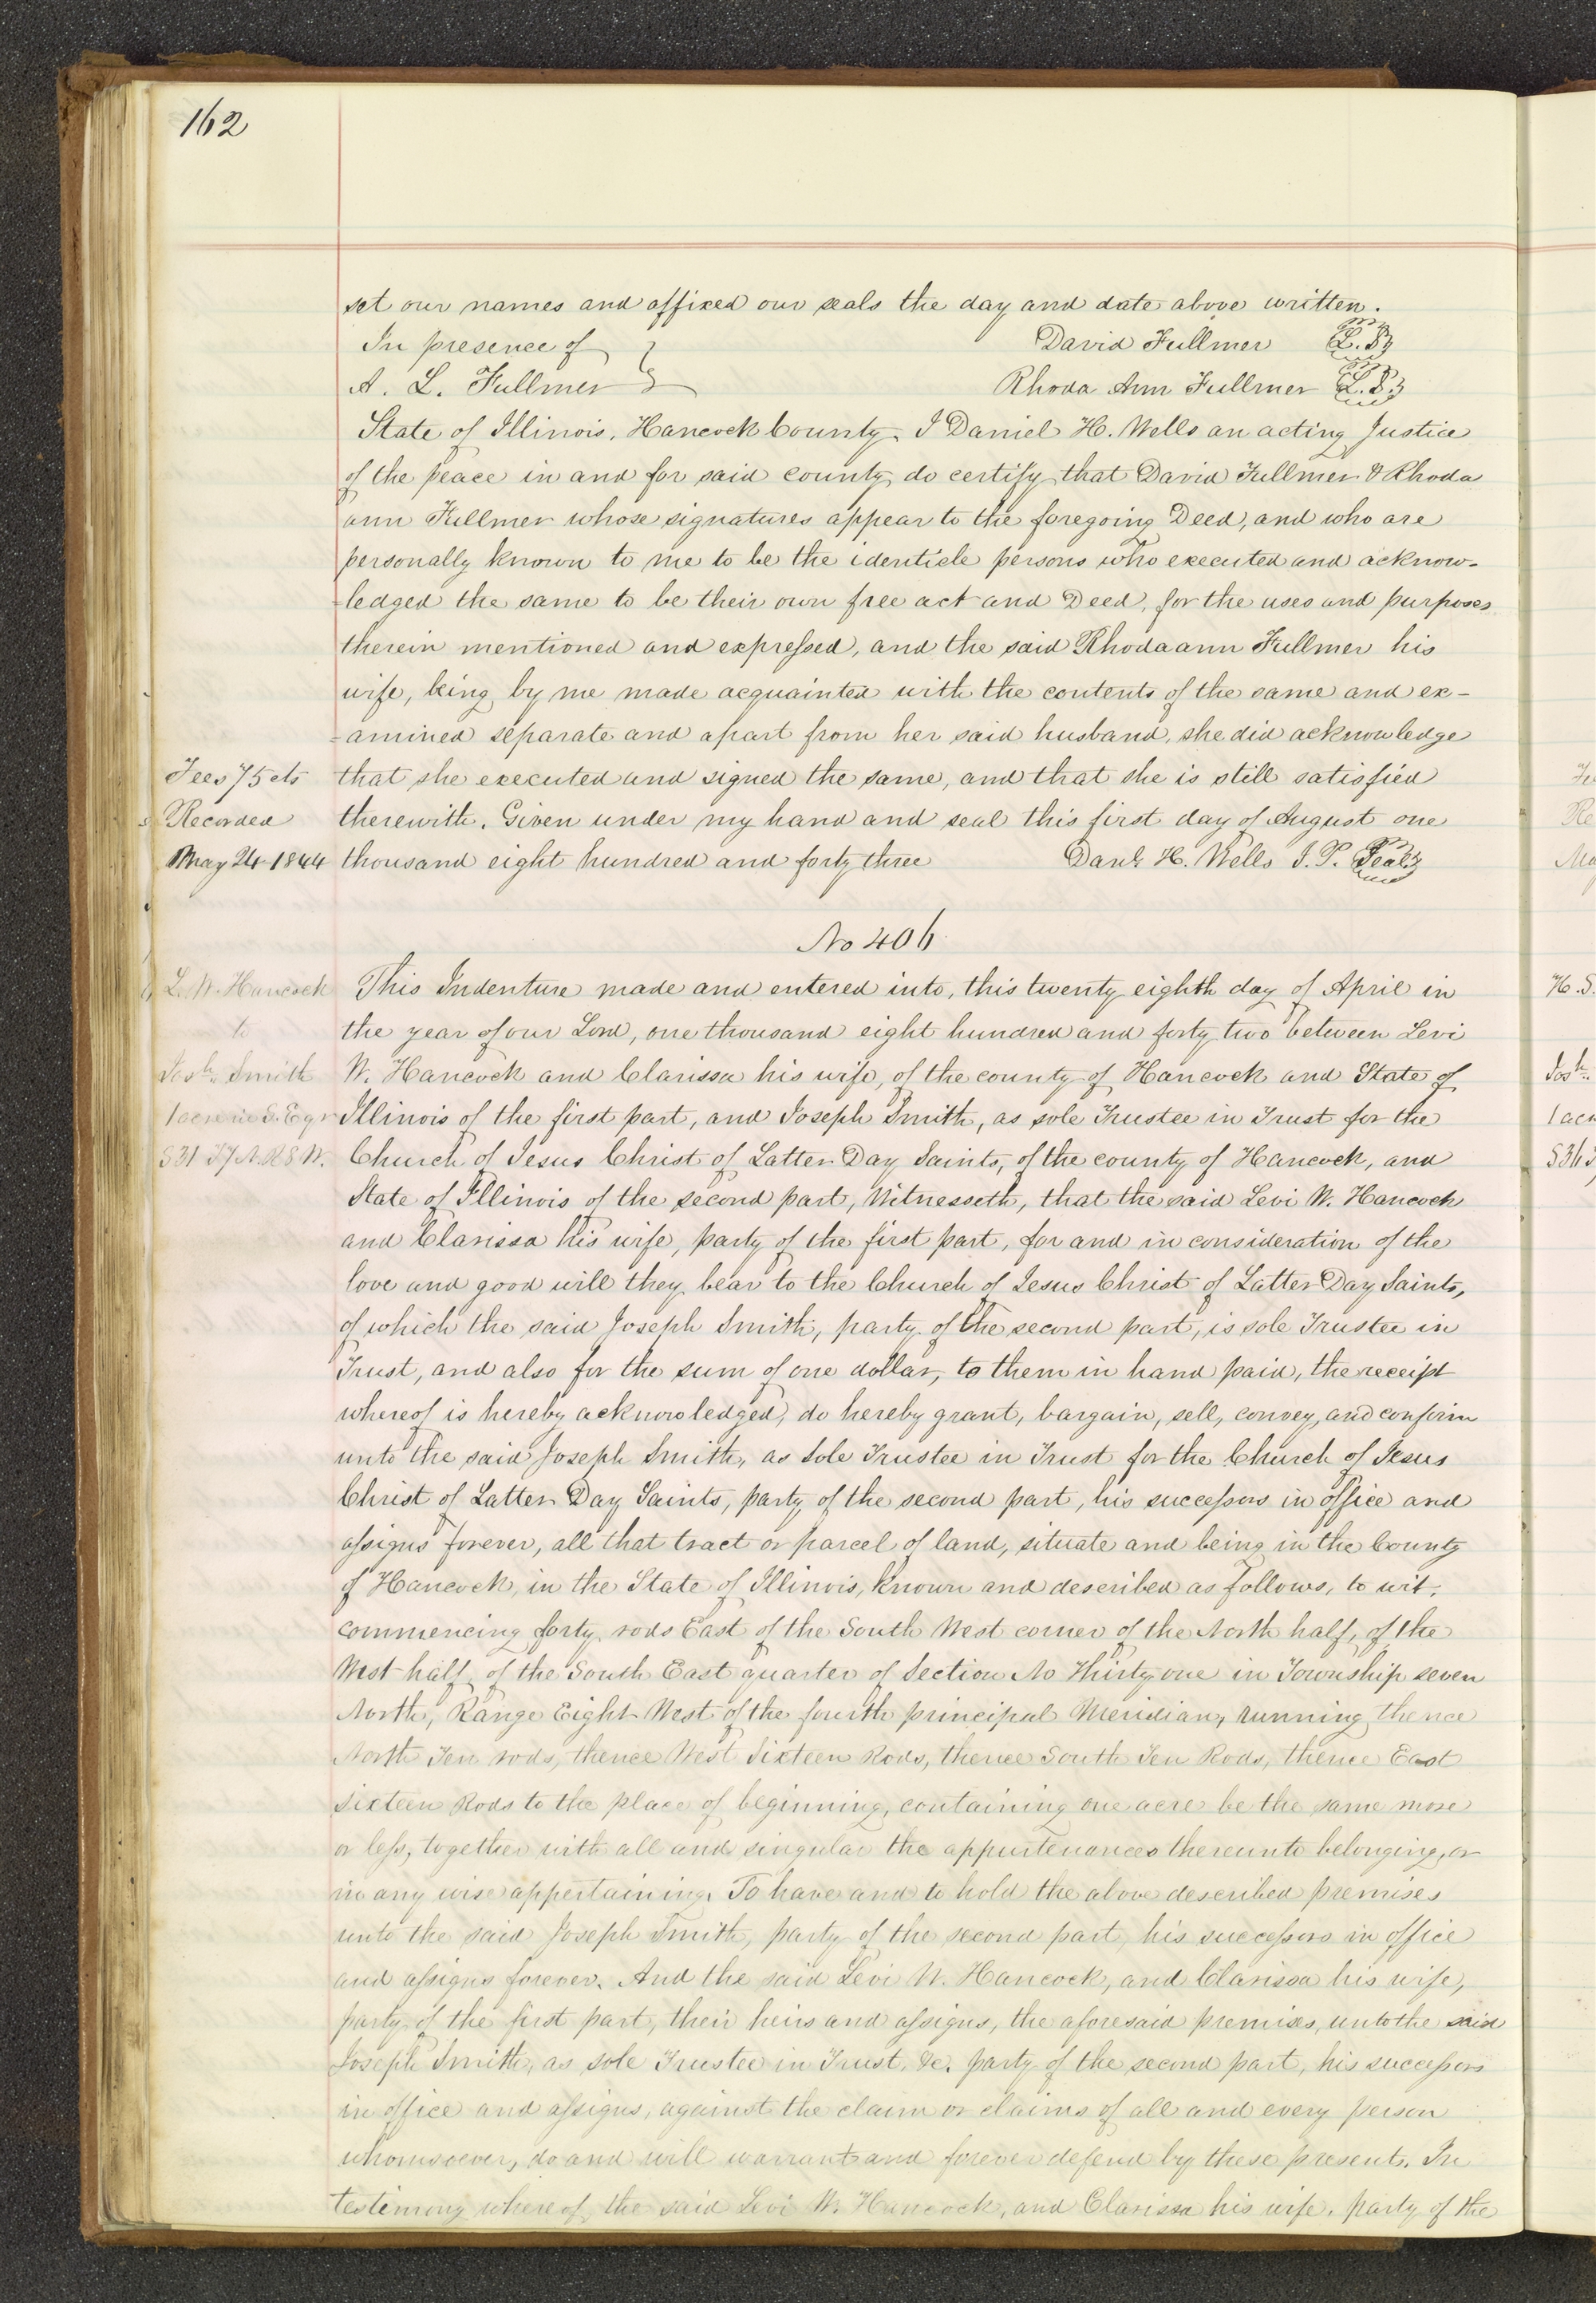 162
set our names and affixed our seals the day and date above written.
In presence of } David Fullmer L.S
A. L. Fullmer } Rhoda Ann Fullmer L.S
State of Illinois, Hancock County. I Daniel H. Wells an acting Justice
of the peace in and for said county, do certify that David Fullmer & Rhoda
ann Fullmer whose signatures appear to the foregoing Deed, and who are
personally known to me to be the identicle persons who executed and acknow-
-ledged the same to be their own free act and Deed, for the uses and purposes
therein mentioned and expressed, and the said Rhoda ann Fullmer his
wife, being by me made acquainted with the contents of the same and ex-
-amined separate and apart from her said husband, she did acknowledge
Fees 75 cts that she executed and signed the same, and that she is still satisfied
Recorded therewith. Given under my hand and seal this first day of August one
May 24 1844 thousand eight hundred and forty three Danl. H. Wells J. P. Seal
No 406
L. W. Hancock This Indenture made and entered into, this twenty eighth day of April in
to the year of our Lord, one thousand eight hundred and forty two between Levi
Josh. Smith W. Hancock and Clarissa his wife, of the county of Hancock and State of
1 acre in S. E qr Illinois of the first part, and Joseph Smith, as sole Trustee in Trust for the
S31 T7 N. R8 W. Church of Jesus Christ of Latter Day Saints, of the county of Hancock, and
State of Illinois of the second part, Witnesseth, that the said Levi W. Hancock
and Clarissa his wife, party of the first part, for and in consideration of the
love and good will they bear to the Church of Jesus Christ of Latter Day Saints,
of which the said Joseph Smith, party of the second part, is sole Trustee in
Trust, and also for the sum of one dollar, to them in hand paid, the receipt
whereof is hereby acknowledged, do hereby grant, bargain, sell, convey, and confirm
unto the said Joseph Smith, as sole Trustee in Trust for the Church of Jesus
Christ of Latter Day Saints, party of the second part, his successors in office and
assigns forever, all that tract or parcel of land, situate and being in the County
of Hancock, in the State of Illinois, known and described as follows, to wit.
commencing forty rods East of the South West corner of the North half, of the
West half of the South East quarter of Section No Thirty one in Township seven
North, Range Eight West of the fourth principal Meridian, running thence
North Ten rods, thence West Sixteen Rods, thence South Ten Rods, thence East
sixteen Rods to the place of beginning, containing one acre be the same more
or less, together with all and singular the appurtenances thereunto belonging, or
in any wise appertaining. To have and to hold the above described premises
unto the said Joseph Smith, party of the second part, his successors in office
and assigns forever. And the said Levi W. Hancock, and Clarissa his wife,
party of the first part, their heirs and assigns, the aforesaid premises, unto the said
Joseph Smith, as sole Trustee in Trust, &c. party of the second part, his successors
in office and assigns, against the claim or claims of all and every person
whomsoever, do and will warrant and forever defend by these presents. In
testimony whereof, the said Levi W. Hancock, and Clarissa his wife, party of the